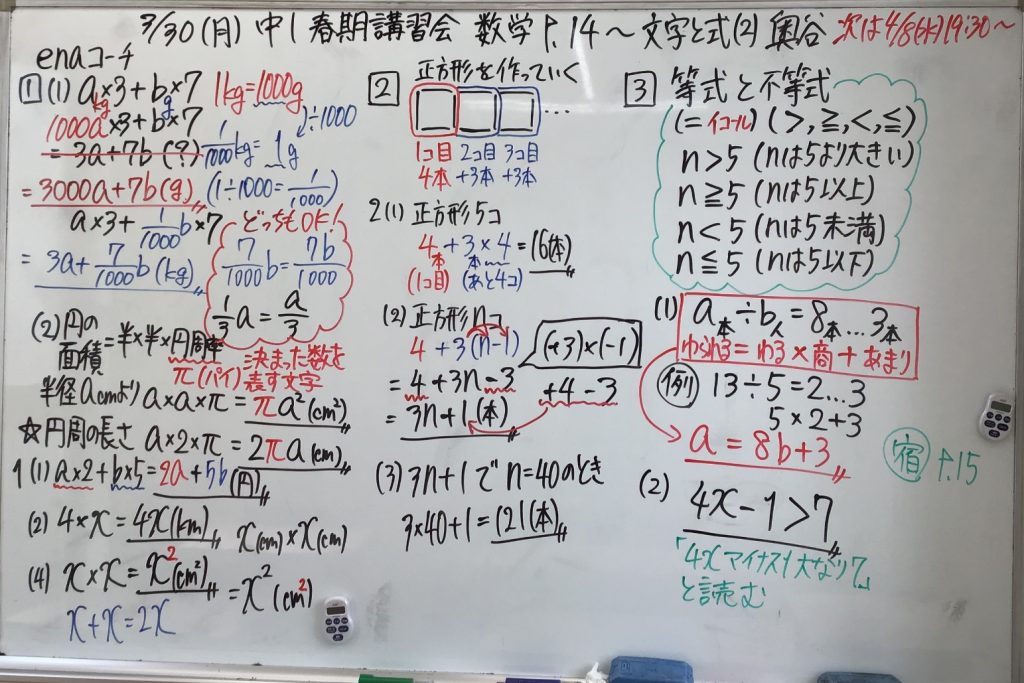 3/30(月) 中1 春期講習会 数学 P.14～文字と式(2) 奥谷 次は4/8(水)19:30～
enaコーチ
1 (1) a×3+b×7 1kg=1000g
kg g
1000a×3+b×7 ÷1000
=3a+7b(?) 1/1000kg=1g
=3000a+7b(g) (1÷1000=1/1000)
a×3+1/1000b×7
=3a+7/1000b(kg)
どっちもOK!
7/1000b=7b/1000
1/3a=a/3
(2)円の面積=半×半×円周率
π(パイ)=決まった数を表す文字
半径acmより a×a×π=πa²(cm²)
☆円周の長さ a×2×π=2πa(cm)
1(1) a×2+b×5=2a+5b(円)
(2) 4×x=4x(km) x(cm)×x(cm)
(4) x×x=x²(cm²) =x²(cm²)
x+x=2x
2 正方形を作っていく
…
1コ目 2コ目 3コ目
4本 +3本 +3本
2(1) 正方形5コ
4+3×4=16(本)
本 本
(1コ目) (あと4コ)
(2) 正方形nコ
4+3(n-1)
(+3)×(-1)
=4+3n-3 +4-3
=3n+1(本)
(3) 3n+1で n=40のとき
3×40+1=121(本)
3 等式と不等式
(=イコール) (>,≧,<,≦)
n>5 (nは5より大きい)
n≧5 (nは5以上)
n<5 (nは5未満)
n≦5 (nは5以下)
(1) a本÷b人=8本…3本
わられる=わる×商+あまり
例 13÷5=2…3
5×2+3
a=8b+3
(2) 4x-1>7
「4xマイナス1大なり7」
と読む
宿 P.15